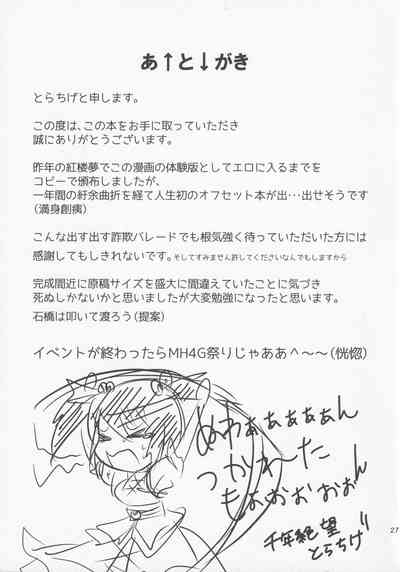 あ↑と↓がき
とらちげと申します。
この度は、この本をお手に取っていただき
誠にありがとうございます。
昨年の紅楼夢でこの漫画の体験版としてエロに入るまでを
コピーで頒布しましたが、
一年間の紆余曲折を経て人生初のオフセット本が出…出せそうです
(満身創痍)
こんな出す出す詐欺パレードでも根気強く待っていただいた方には
感謝してもしきれないです。そしてすみません許してくださいなんでもしますから
完成間近に原稿サイズを盛大に間違えていたことに気づき
死ぬしかないかと思いましたが大変勉強になったと思います。
石橋は叩いて渡ろう(提案)
イベントが終わったらMH4G祭りじゃああ^～～(恍惚)
ぬわぁぁぁぁぁん
つかれた
もぉおおぉん
千年絶望
とらちげ
27